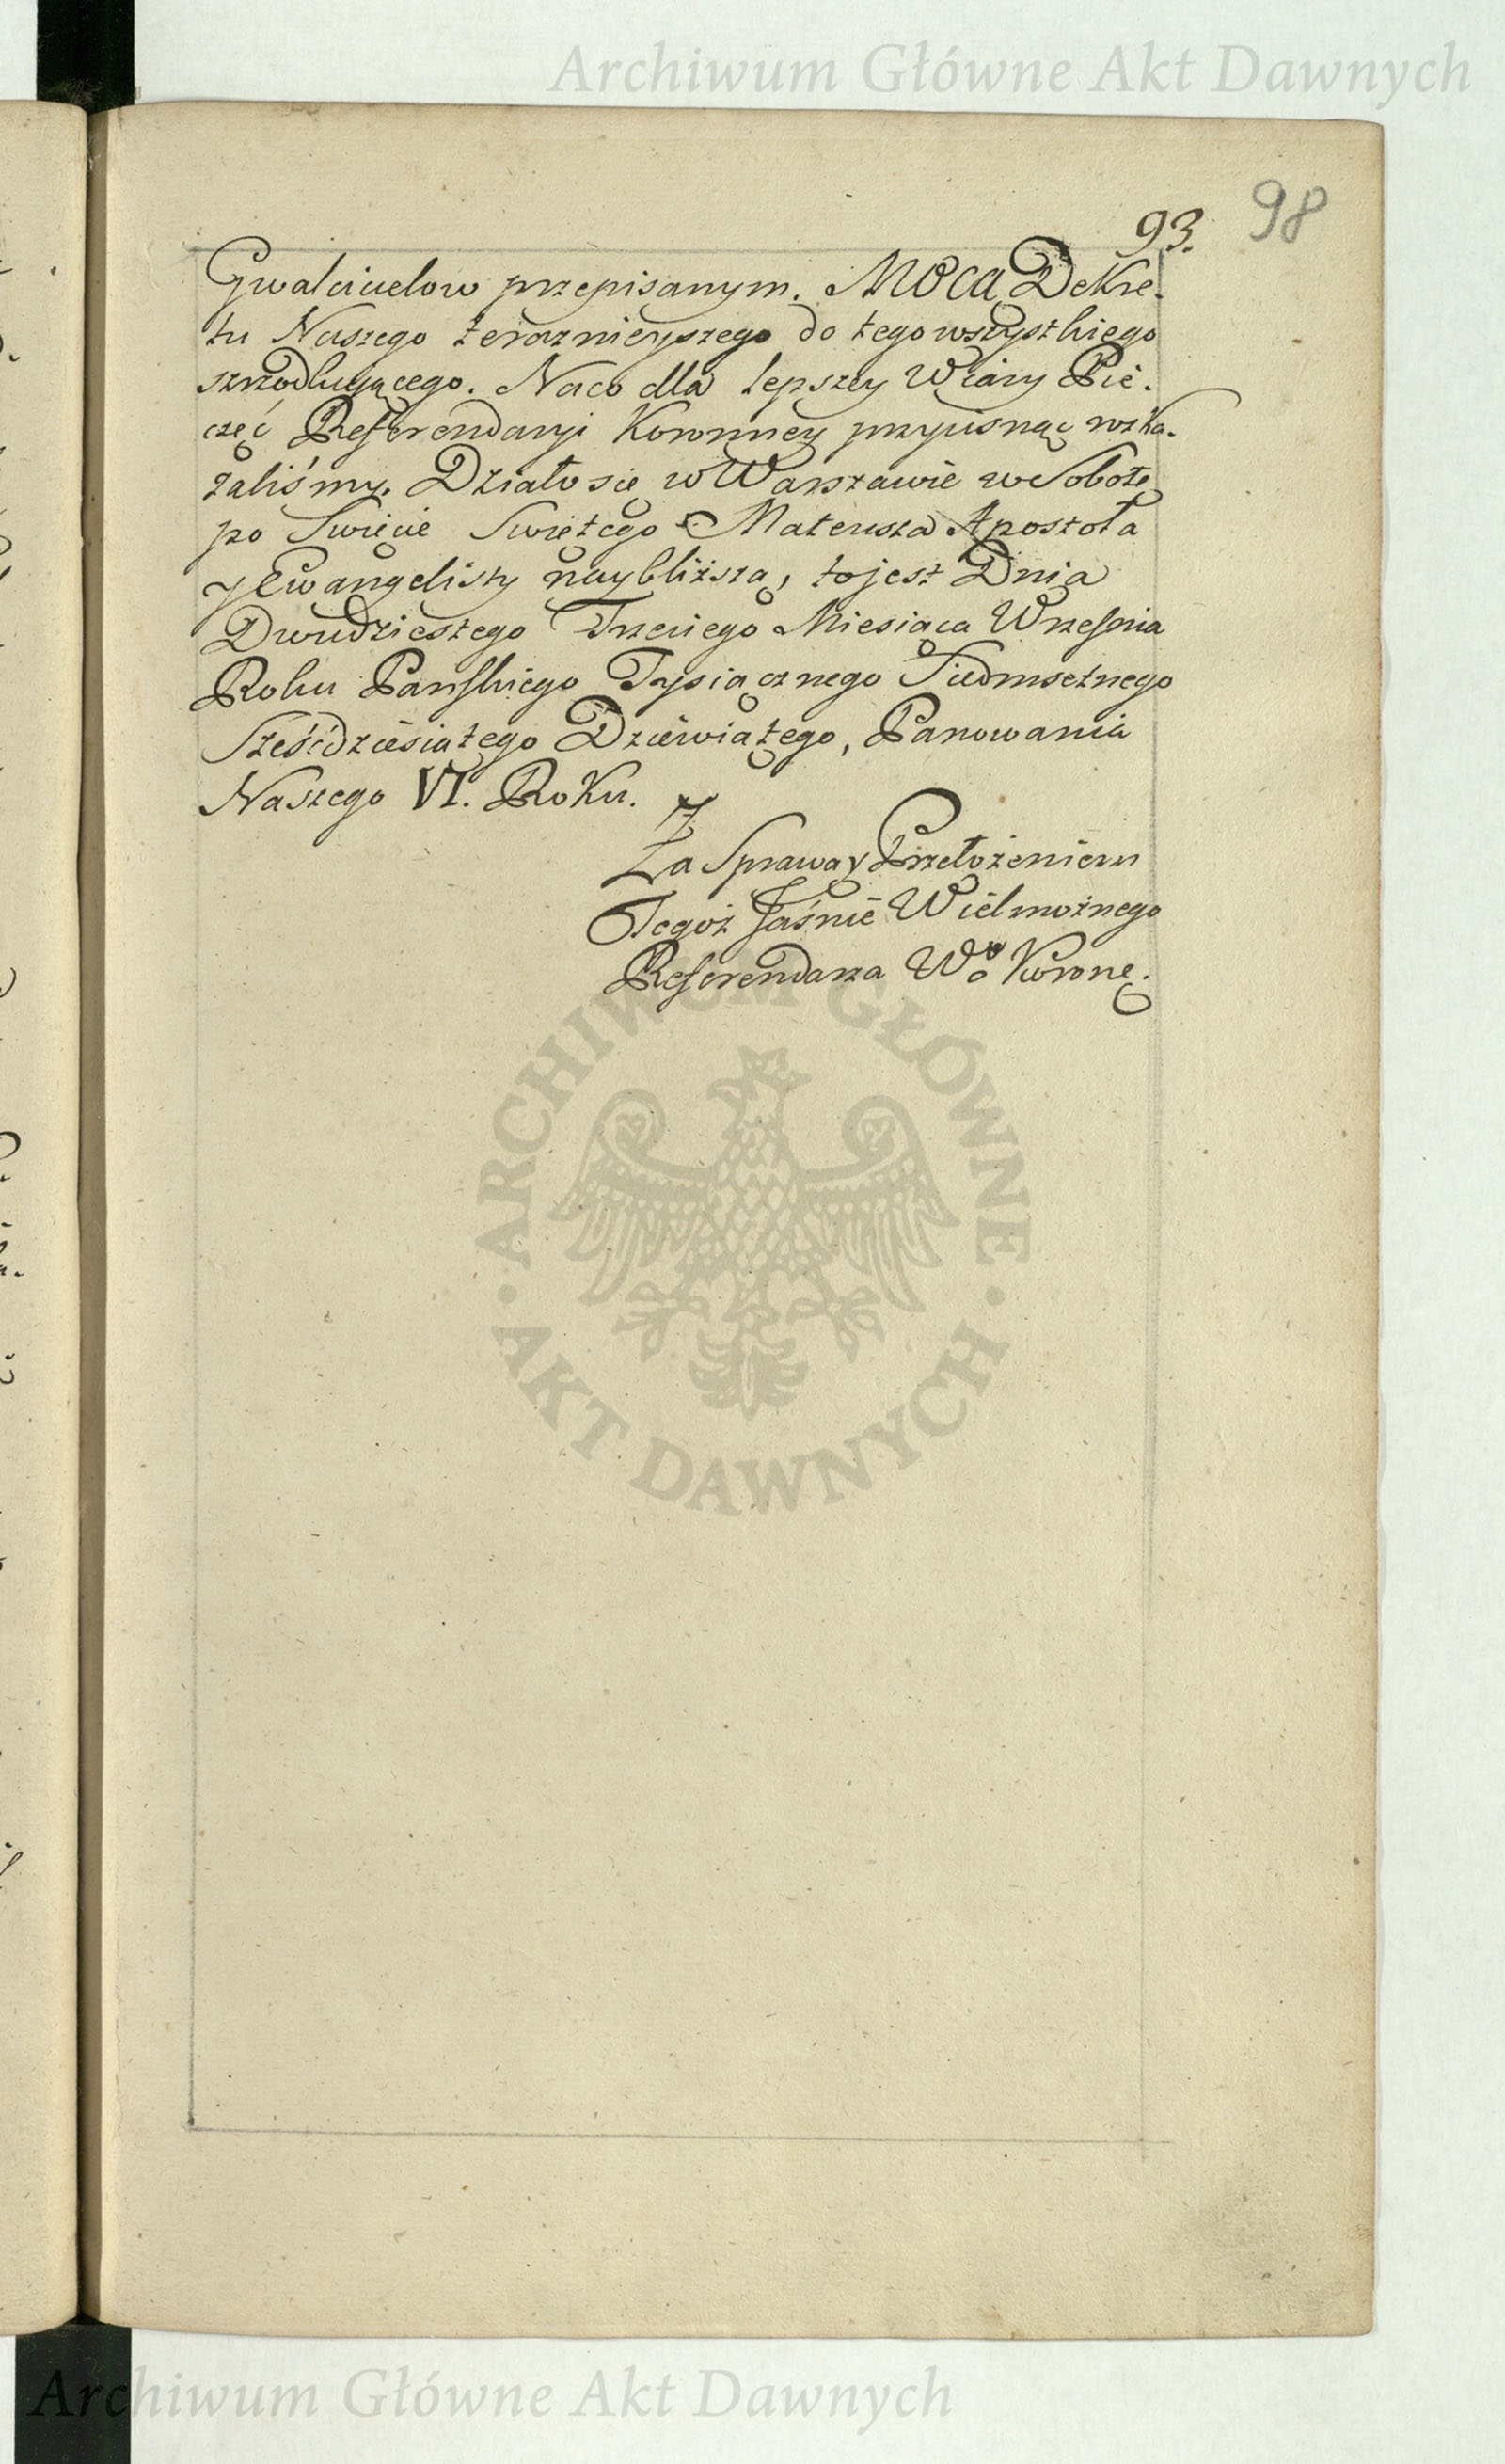 Archiwum Główne Akt Dawnych
98
93.
Gwałcicielow przepisanym. MOCĄ Dekre-
tu Naszego teraznieyszego do tego wszystkiego
szrzodkuyącego. Naco dla lepszey Wiary Pie-
częć Referendaryi Koronney przycisnąć rozka-
zaliśmy. Działo się w Warszawie w Sobotę
po Swięcie Swiętego Mateusza Apostoła
y Ewangelisty naybliższą, to jest Dnia
Dwudziestego Trzeciego Miesiąca Września
Roku Pańskiego Tysiącznego Siedmsetnego
Sześćdziesiątego Dziewiątego, Panowania
Naszego VI. Roku.
Za Sprawą y Przełożeniem
Tegoż Jaśnie Wielmożnego
Referendarza Wo Koronę.
ARCHIWUM GŁÓWNE
AKT DAWNYCH
Archiwum Główne Akt Dawnych